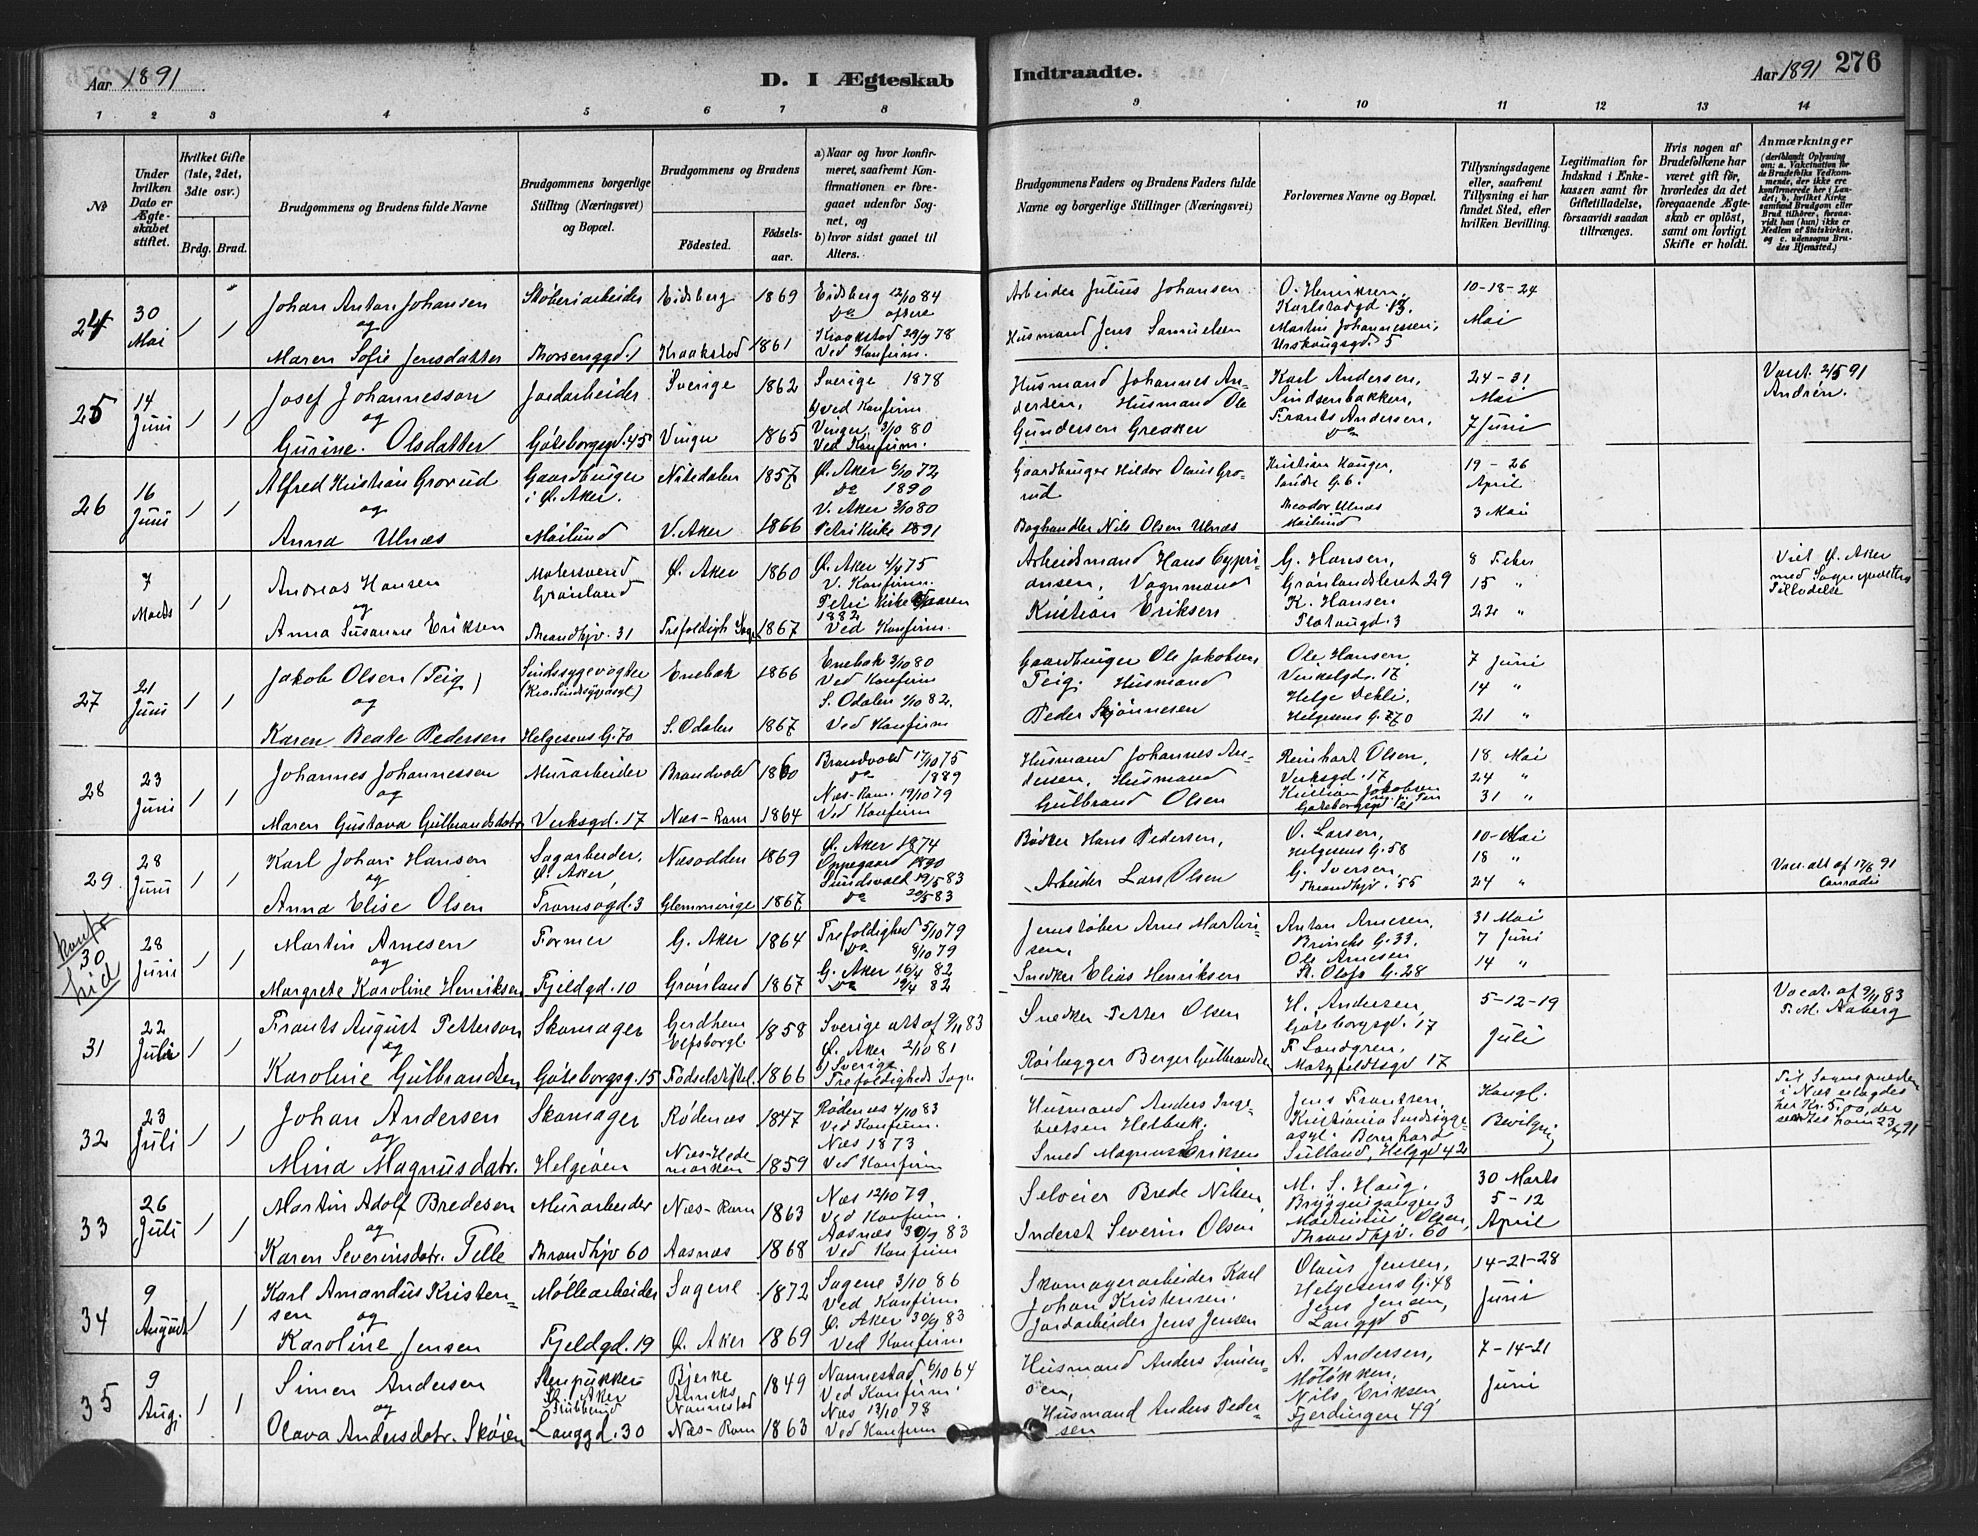 Aar 1891
D. I Ægteskab
Indtraadte.
Aar 1891
276
1 2 3 4 5 6 7 8 9 10 11 12 13 14
No
Under hvilken Dato er Ægteskabet stiftet.
Hvilket Gifte (1ste, 2det, 3die osv.)
Brdg. Brud.
Brudgommens og Brudens fulde Navne
Brudgommens borgerlige Stilling (Næringsvei) og Bopæl.
Brudgommens og Brudens
Födested.
Födselsaar.
a) Naar og hvor konfirmeret, saafremt Konfirmationen er foregaaet udenfor Sognet, og
b) hvor sidst gaaet til Alters.
Brudgommens Faders og Brudens Faders fulde Navne og borgerlige Stillinger (Næringsvei)
Forlovernes Navne og Bopæl.
Tillysningsdagene eller, saafremt Tillysning ei har fundet Sted, efter hvilken Bevilling.
Legitimation for Indskud i Enkekassen samt for Giftetilladelse, forsaavidt saadan tiltrænges.
Hvis nogen af Brudefolkene har været gift för, hvorledes da det foregaaende Ægteskab er oplöst, samt om lovligt Skifte er holdt.
Anmærkninger
24
30 Mai
1 1
Johan Anton Johansen
og
Maren Sofie Jensdatter
Skoberiarbeider
Thorsenggd. 1
Eidsberg 1869
Kraakstad 1861
Eidsberg 12/10 84
Do oftere
Kraakstad 29/9 78
Ved Konfirm.
Arbeider Julius Johansen
Husmand Jens Samuelsen
O. Henriksen,
Karlstadgd. 13.
Martin Johannessen,
Urskougsgd. 5
10-18-24
Mai
25
14 Juni
1 1
Josef Johannesson
og
Gurine Olsdatter
Jordarbeider
Göteborgsgd. 45
Sverige 1862
Vinger 1865
Sverige 1878
b) ved Konfirm.
Vinger 3/10 80
Ved Konfirm.
Husmand Johannes Andersen, Husmand Ole
Gundersen Greaker
Karl Andersen,
Sindsenbakken,
Frants Andersen,
Do
24-31
Mai
7 Juni
Vacc. 2/5 91
Andrén.
26
16 Juni
1 1
Alfred Kristian Grorud
og
Anna Ulnæs
Gaardbruger
i Ø. Aker.
Mailund
Nitedalen 1857
V. Aker 1866
Ø. Aker 6/10 72
Do 1890
V. Aker 3/10 80
Petri Kirke 1891
Gaardbruger Hildor Olaus Grorud
Boghandler Nils Olsen Ulnæs
Kristian Hauger,
Theodor Ulnæs
Mailund
19-26
April
3 Mai
7 Marts
1 1
Andreas Hansen
og
Anna Susanne Eriksen
Malersvend
Grønland
Thrandhjv. 31
Ø. Aker 1860
Trefoldigh. Sogn 1867
Ø. Aker 4/4 75
V. Konfirm.
Petri Kirke
1882
Ved Konfirm.
Arbeidsmand Hans Cypriansen, Vognmand
Kristian Eriksen
G. Hansen,
Grønlandsleret 29
K. Hansen
Platougd. 3
8 Feber
15 "
22 "
Viet Ø. Aker
med Sognepræstens
Tilladelse
27
21 Juni
1 1
Jakob Olsen (Teig)
og
Karen Beate Pedersen
Sindssygevogter
(Kra. Sindssygeasyl)
Helgesens G. 70
Enebak 1866
S. Odalen 1867
Enebak 3/10 80
Ved Konfirm
S. Odalen 1/10 82.
Ved Konfirm
Gaardbruger Ole Jakobsen
Teig. Husmand
Peder Skjønnesen
Ole Hansen,
Vinkelgd. 17
Helge Dehli,
Helgesens G. 70
7 Juni
14 "
21 "
28
23 Juni
1 1
Johannes Johannessen
og
Maren Gustava Gulbrandsdatr
Murarbeider
Verksgd. 17
Brandvold 1860
Næs-Rom 1864
Brandvold 17/10 75
Do 1889
Næs-Rom. 19/10 79
Ved Konfirm
Husmand Johannes Andersen, Husmand
Gulbrand Olsen
Reinhart Olsen,
Verksgd. 17
Kristian Jakobsen
Göteborgsgd 21
18 Mai
24 "
31 "
29
28 Juni
1 1
Karl Johan Hansen
og
Anna Elise Olsen
Sagarbeider,
Ø. Aker
Tromsøgd. 3
Næsodden 1869
Glemminge 1867
Ø. Aker 1874
Oppegaard 1890
Sundsvall 19/5 83
Do 20/5 83
Bødker Hans Pedersen,
Arbeider Lars Olsen
O. Larsen,
Helgesens G. 58
G. Iversen,
Thrandhjv. 55
10 Mai
18 "
24 "
Vacc. att af 17/6 91
Conradi
konfr
30
hid
28 Juni
1 1
Martin Arnesen
og
Margrete Karoline Henriksen
Former
Fjeldgd. 10
G. Aker 1864
Grønland 1867
Trefoldighed 5/10 79
Do 8/10 79
G. Aker 16/4 82
Do 19/4 82
Jernstøber Arne Martinsen,
Snedker Elias Henriksen
Anton Arnesen,
Brincks G. 33.
Ole Arnesen
St. Olafs G. 28
31 Mai
7 Juni
14 "
31
22 Juli
1 1
Frants August Petterson
og
Karoline Gulbrandsen
Skomager
Göteborgsg. 15
Gerdhem
Elfsborgl 1858
Födselsstiftel. 1866
Sverige att af 9/11 83
Ø. Aker 2/10 81
b) Sverige
Trefoldigheds Sogn
Snedker Petter Olsen
Roilægger Berger Gulbrandsen
H. Andersen,
Göteborgsgd. 17
F. Landgren,
Motzfeldtsgd 17
5-12-19
Juli
Vacat. af 9/11 83
F. M. Aaberg
32
23 Juli
1 1
Johan Andersen
og
Mina Magnusdatr.
Skomager
Helgøen
Rødenæs 1847
Næs-Hedemarken 1859
Rødenæs 4/10 83
Ved Konfirm.
Næs 1873
Ved Konfirm
Husmand Anders Ingebretsen
Smed Magnus Eriksen
Jens Frantzen,
Kristiania Sindssygeasyl. Bernhard
Sulland, Helggd 42
Kongl.
Bevilgning
Til Sognepræsten
i Næs erlagdes
her Kr. 5.00, der
sendtes ham 23/7 91
33
26 Juli
1 1
Martin Adolf Bredesen
og
Karen Severinsdatr. Telle
Murarbeider
Thrandhjv 60
Næs-Rom 1863
Aasnæs 1868
Næs 12/10 79.
Ved Konfirm
Aasnæs 30/9 83
Ved Konfirm
Selveier Brede Nilsen,
Inderst Severin Olsen
M. S. Haug,
Martinius Olsen,
Thrandhjv. 60
30 Marts
5-12
April
34
9 August
1 1
Karl Amandus Kristensen
og
Karoline Jensen
Møllearbeider
Fjeldgd. 19
Sagene 1872
Ø. Aker 1869
Sagene 3/10 86
Ved Konfirm
Ø. Aker 30/9 83
Ved Konfirm
Skomagerarbeider Karl
Johan Kristensen.
Jordarbeider Jens Jensen
Olaus Jensen,
Helgesens G. 48
Jens Jensen,
Langgd 5
14-21-28
Juni
35
9 Aug.
1 1
Simen Andersen
og
Olava Andersdatr. Skøien
Stenpukker
Ø. Aker
Langgd. 30
Bjerke
Anneks
Nannestad 1849
Næs-Rom 1863
Nannestad 6/10 64
Ved Konfirm.
Næs 13/10 78
Ved Konfirm
Husmand Anders Simensen,
Husmand Anders Pedersen
A. Andersen,
Nils Eriksen
Fjerdingen 49
7-14-21
Juni